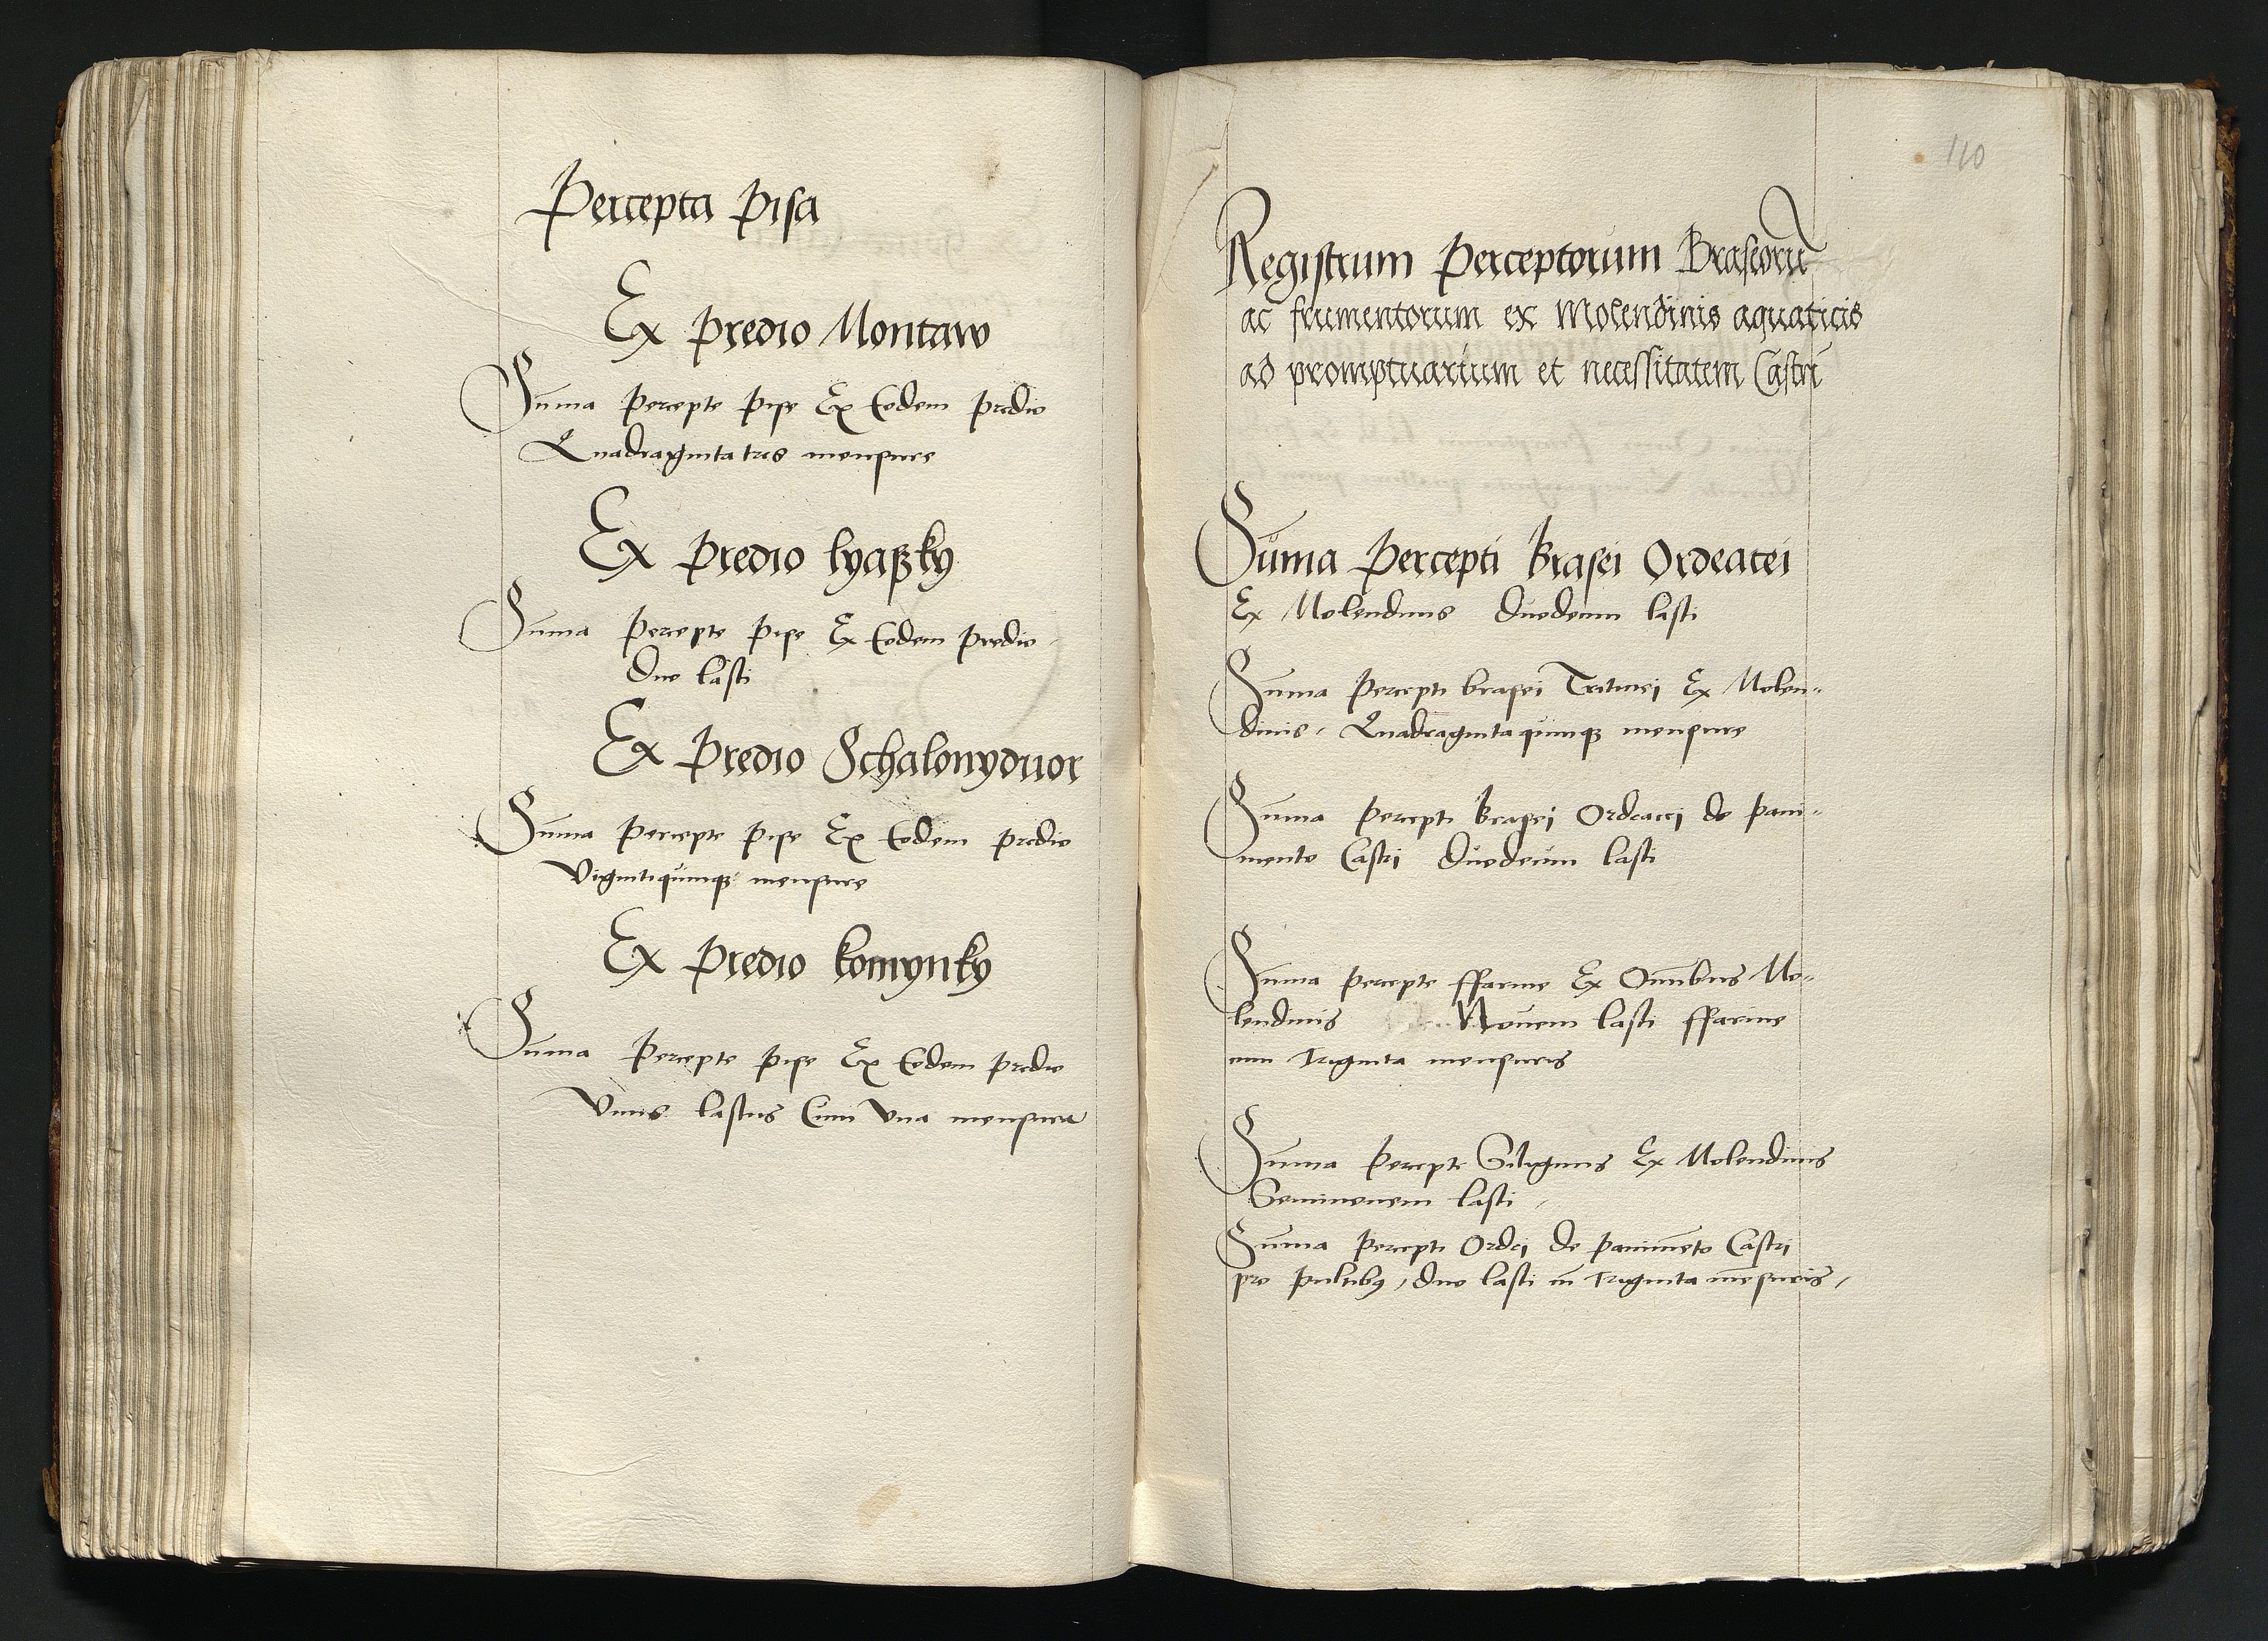 Percepta Pisa
Ex Predio Montaw
Suma Percepte Pise Ex Eodem Predio
Quadragintatres mensure
Ex Predio lyaszky
Suma Percepte Pise Ex Eodem Predio
Duo lasti
Ex Predio Schalonyduor
Suma Percepte Pise Ex Eodem Predio
Vigintiquinqz mensure
Ex Predio komynky
Suma Percepte Pise Ex Eodem Predio
Vnus lastus Cum Vna mensura
110
Registrum Perceptorum Braseorū
ac frumentorum ex Molendinis aquaticis
ad promptuarium et necessitatem Castri
Suma Percepti Brasei Ordeacei
Ex Molendinis Duodecim lasti
Suma Percepti brasei Triticei Ex Molen-
dinis, Quadragintaquinqz mensure
Suma Percepti Brasei Ordeacei de Paui-
mento Castri Duodecim lasti
Suma Percepte ffarine Ex Omnibus Mo-
lendinis Nouem lasti ffarine
cum Triginta mensuris
Suma Percepte Siliginis Ex Molendinis
Seminouem lasti
Suma Percepti Ordei de Pauimēto Castri
pro Pultibus, duo lasti cū Triginta mēsuris,